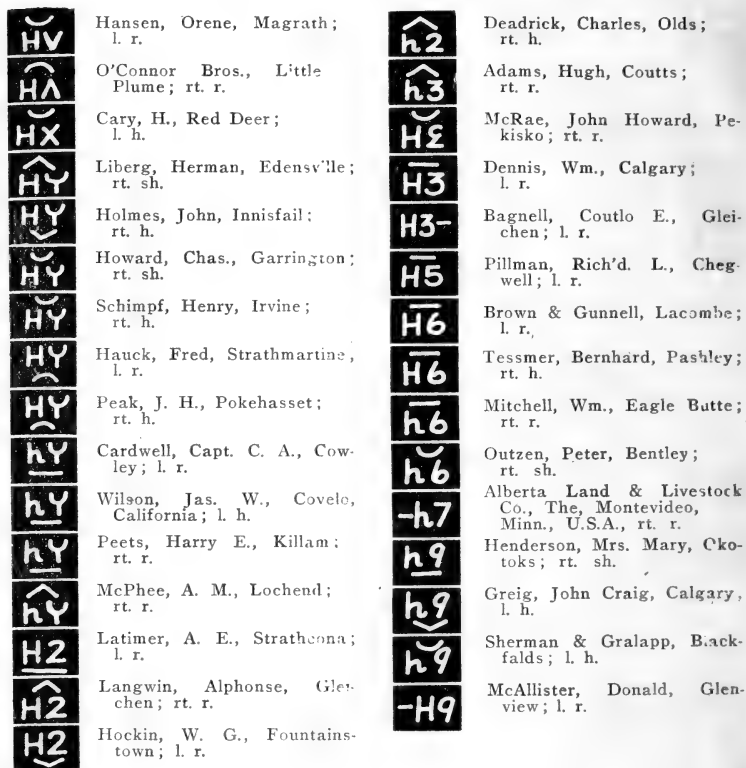 HV
Hansen, Orene, Magrath;
l. r.
HΛ
O'Connor Bros., Little
Plume; rt. r.
HX
Cary, H., Red Deer;
l. h.
HY
Liberg, Herman, Edensville;
rt. sh.
HY
Holmes, John, Innisfail;
rt. h.
HY
Howard, Chas., Garrington;
rt. sh.
HY
Schimpf, Henry, Irvine;
rt. h.
HY
Hauck, Fred, Strathmartine,
l. r.
HY
Peak, J. H., Pokehasset;
rt. h.
hY
Cardwell, Capt. C. A., Cow-
ley; l. r.
hY
Wilson, Jas. W., Covelo,
California; l. h.
hY
Peets, Harry E., Killam;
rt. r.
hY
McPhee, A. M., Lochend;
rt. r.
H2
Latimer, A. E., Strathcona;
l. r.
H2
Langwin, Alphonse, Glei-
chen; rt. r.
H2
Hockin, W. G., Fountains-
town; l. r.
h2
Deadrick, Charles, Olds;
rt. h.
h3
Adams, Hugh, Coutts;
rt. r.
HƐ
McRae, John Howard, Pe-
kisko; rt. r.
H3
Dennis, Wm., Calgary;
l. r.
H3-
Bagnell, Coutlo E., Glei-
chen; l. r.
H5
Pillman, Rich'd. L., Cheg-
well; l. r.
H6
Brown & Gunnell, Lacombe;
l. r.
H6
Tessmer, Bernhard, Pashley;
rt. h.
h6
Mitchell, Wm., Eagle Butte;
rt. r.
h6
Outzen, Peter, Bentley;
rt. sh.
-h7
Alberta Land & Livestock
Co., The, Montevideo,
Minn., U.S.A., rt. r.
h9
Henderson, Mrs. Mary, Oko-
toks; rt. sh.
h9
Greig, John Craig, Calgary,
l. h.
h9
Sherman & Gralapp, Black-
falds; l. h.
-H9
McAllister, Donald, Glen-
view; l. r.